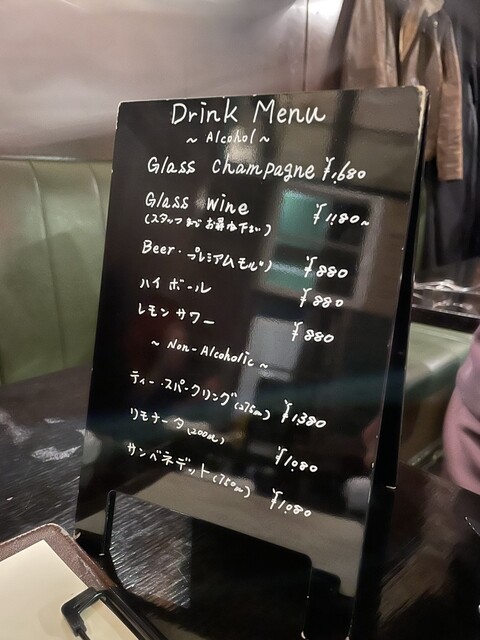 Drink Menu
~ Alcohol ~
Glass Champagne ¥1,680
Glass Wine ¥1,180~
(スタッフまでお尋ね下さい)
Beer・プレミアムモルツ) ¥880
ハイボール ¥880
レモンサワー ¥880
~ Non-Alcoholic ~
ティー・スパークリング(275ml) ¥1,380
リモナータ(200ml) ¥1,080
サンベネデット(750ml) ¥1,080